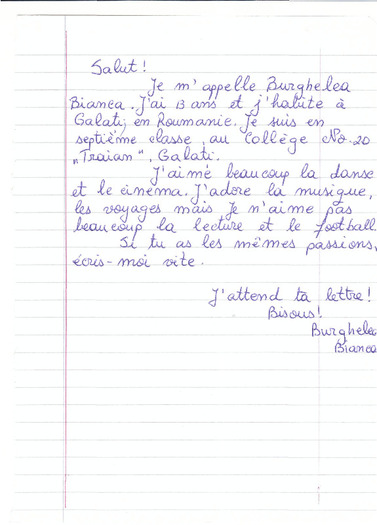 Salut!
Je m'appelle Burghelea
Bianca. J'ai 13 ans et j'habite à
Galati, en Roumanie. Je suis en
septième classe, au Collège No. 20
„Traian", Galati.
J'aime beaucoup la danse
et le cinéma. J'adore la musique,
les voyages mais je n'aime pas
beaucoup la lecture et le football.
Si tu as les mêmes passions,
écris-moi vite.
J'attend ta lettre!
Bisous!
Burghelea
Bianca